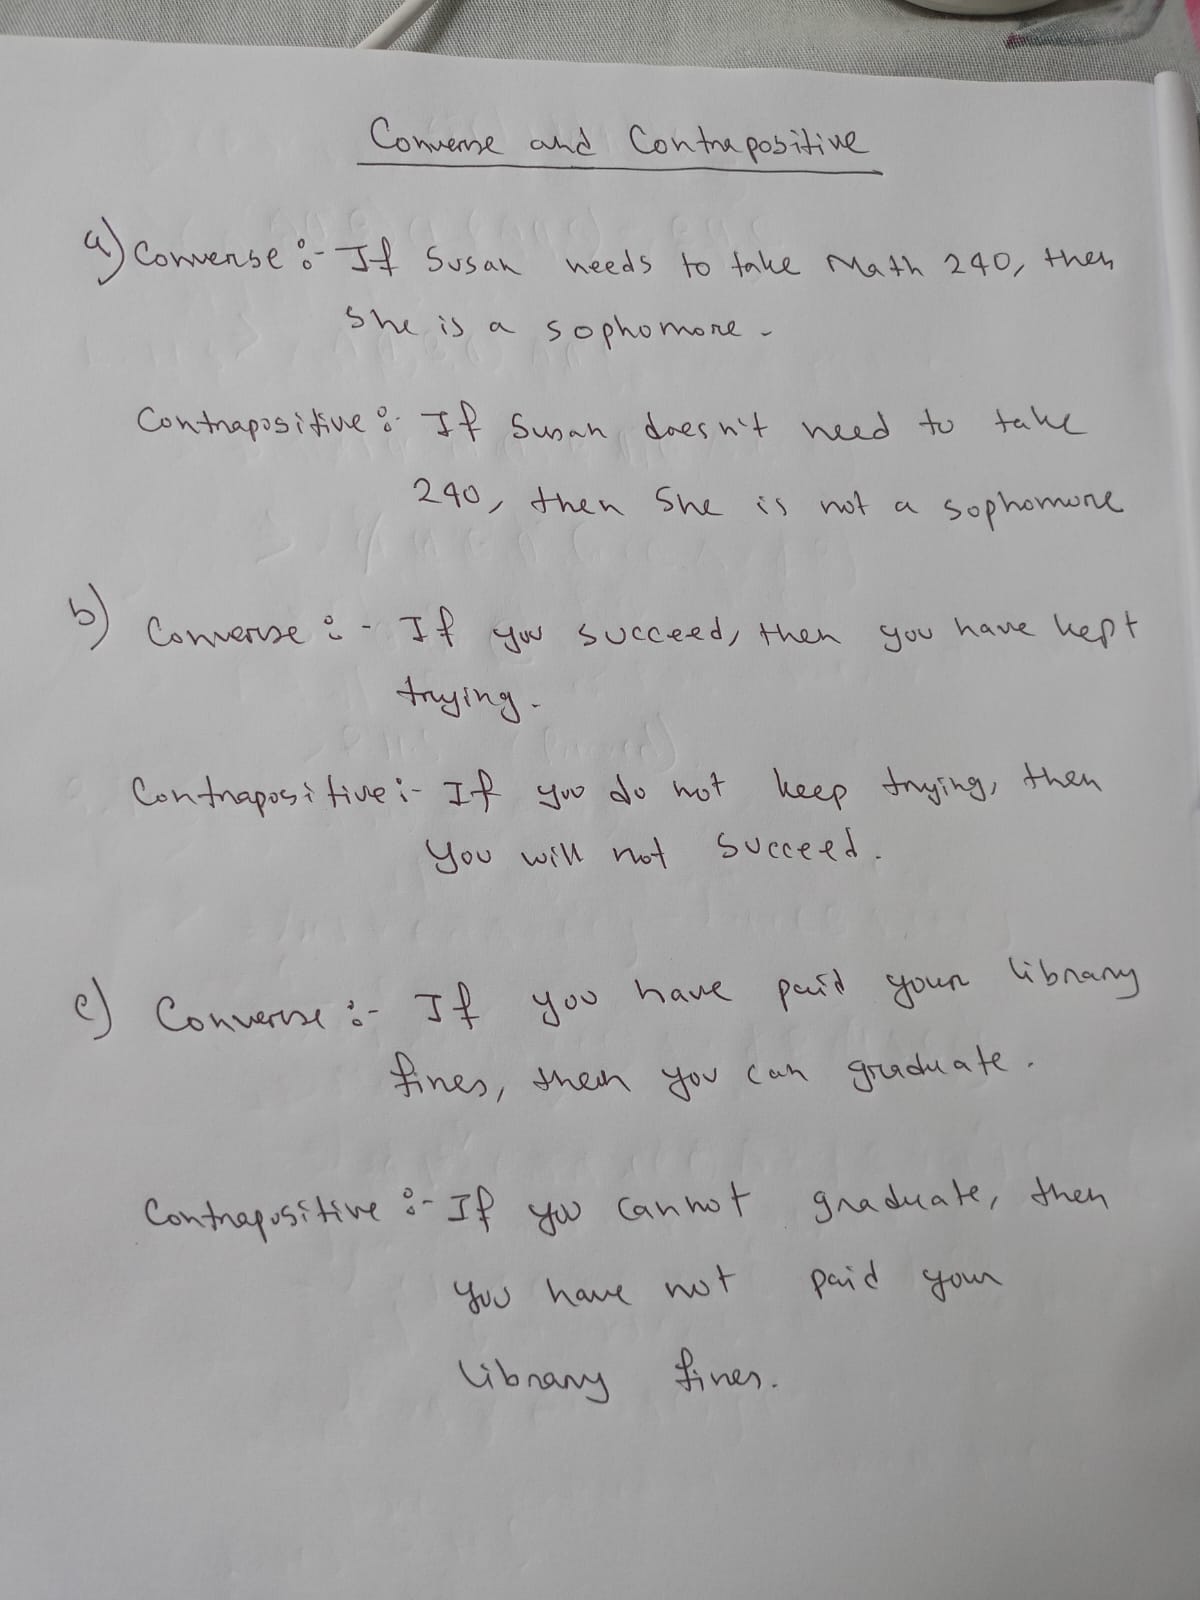 Converse and Contrapositive
a) Converse :- If Susan needs to take Math 240, then
She is a sophomore.
Contrapositive :- If Susan doesn't need to take
240, then She is not a sophomore
b) Converse :- If you succeed, then you have kept
trying.
Contrapositive :- If you do not keep trying, then
You will not succeed.
c) Converse :- If you have paid your library
fines, then you can graduate.
Contrapositive :- If you cannot graduate, then
you have not paid your
library fines.